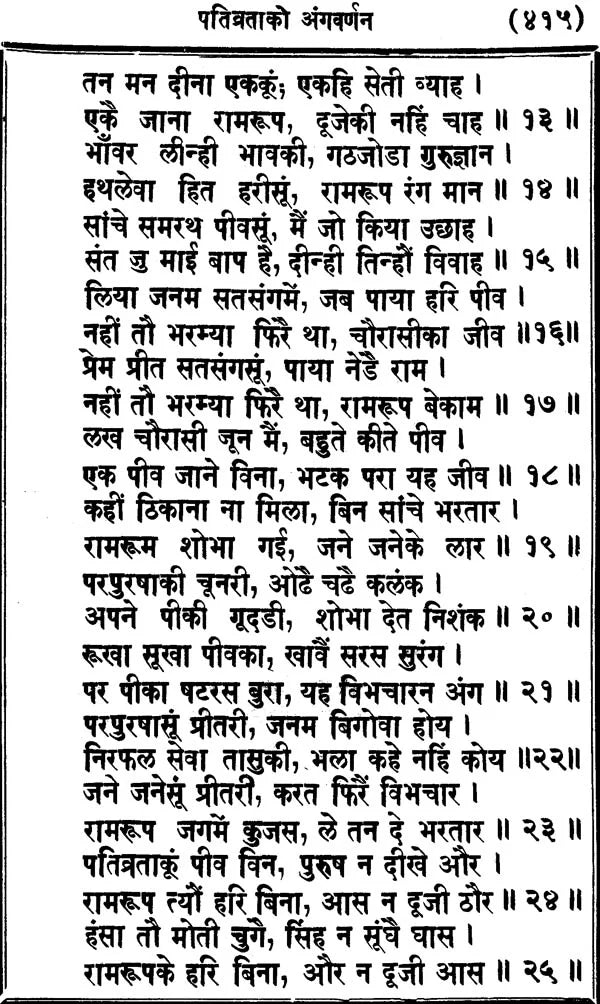 पतिव्रताको अंगवर्णन (४१५)
तन मन दीना एककूं; एकहि सेती व्याह ।
एकै जाना रामरूप, दूजेकी नहिं चाह ॥ १३ ॥
भाँवर लीन्ही भावकी, गठजोडा गुरुज्ञान ।
हथलेवा हित हरीसूं, रामरूप रंग मान ॥ १४ ॥
सांचे समरथ पीवसूं, मैं जो किया उछाह ।
संत जु माई बाप है, दीन्ही तिन्हौं विवाह ॥ १५ ॥
लिया जनम सतसंगमें, जब पाया हरि पीव ।
नहीं तौ भरम्या फिरै था, चौरासीका जीव ॥१६॥
प्रेम प्रीत सतसंगसूं, पाया नेडै राम ।
नहीं तौ भरम्या फिरै था, रामरूप बेकाम ॥ १७ ॥
लख चौरासी जून मैं, बहुते कीते पीव ।
एक पीव जाने विना, भटक परा यह जीव ॥ १८ ॥
कहीं ठिकाना ना मिला, बिन सांचे भरतार ।
रामरूम शोभा गई, जने जनेके लार ॥ १९ ॥
परपुरषाकी चूनरी, ओढै चढै कलंक ।
अपने पीकी गूदडी, शोभा देत निशंक ॥ २० ॥
रूखा सूखा पीवका, खावैं सरस सुरंग ।
पर पीका षटरस बुरा, यह विभचारन अंग ॥ २१ ॥
परपुरषासूं प्रीतरी, जनम बिगोवा होय ।
निरफल सेवा तासुकी, भला कहे नहिं कोय ॥२२॥
जने जनेसूं प्रीतरी, करत फिरैं विभचार ।
रामरूप जगमें कुजस, ले तन दे भरतार ॥ २३ ॥
पतिव्रताकूं पीव विन, पुरुष न दीखे और ।
रामरूप त्यौं हरि बिना, आस न दूजी ठौर ॥ २४ ॥
हंसा तौ मोती चुगै, सिंह न सूंघै घास ।
रामरूपके हरि बिना, और न दूजी आस ॥ २५ ॥